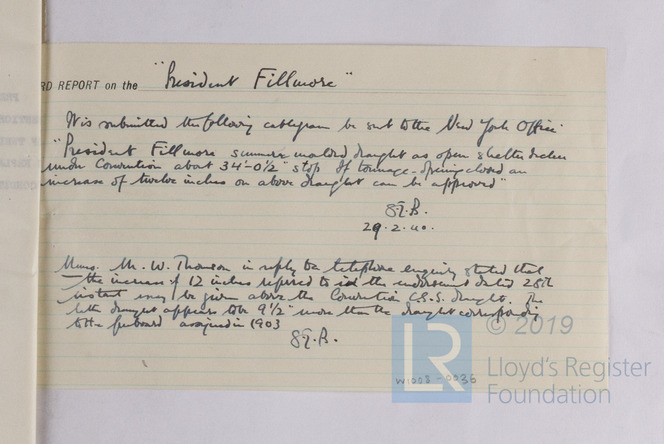 RD REPORT on the "President Fillmore"
It is submitted the following cablegram be sent to the New York Office
"President Fillmore summer moulded draught as open shelter decker
under Convention about 34'-0½" stop If tonnage opening closed an
increase of twelve inches on above draught can be approved"
29.2.40.
Memo. Mr. W. Thomson in reply to a telephone enquiry stated that
the increase of 12 inches referred to in the endorsement dated 28th
instant may be given above the Convention C.S.S. draught. The
latter draught appears to be 9½" more than the draught corresponding
to the freeboard assigned in 1903
W1008-0036
© 2019
LR
Lloyd's Register
Foundation